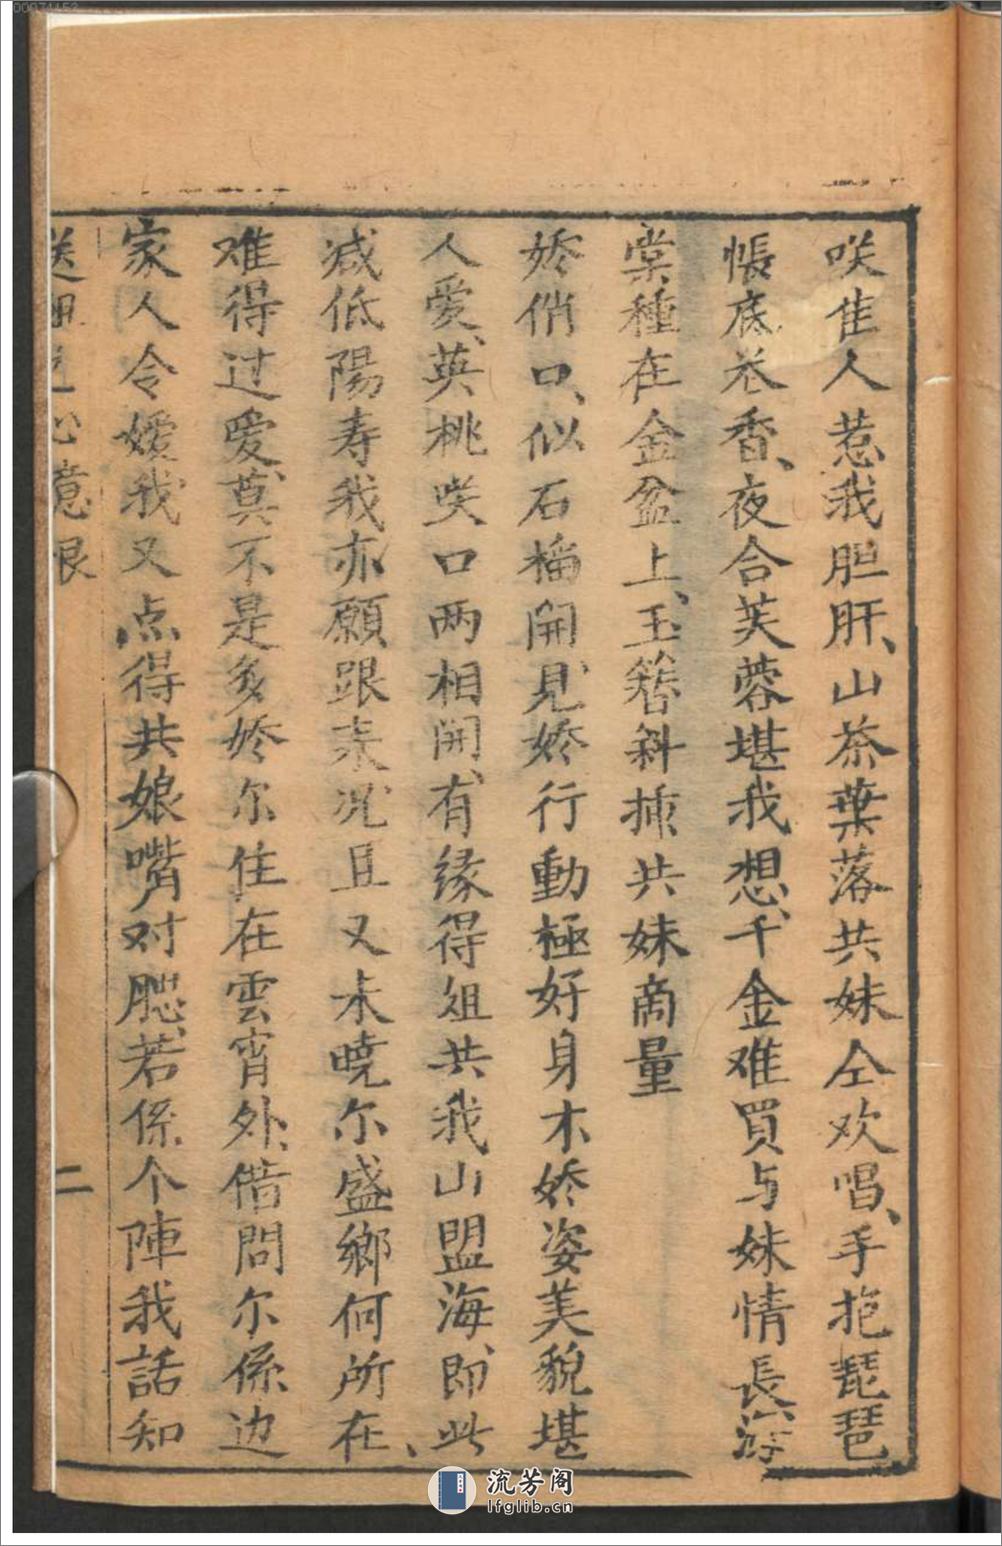 咲隹人惹我胆肝、山茶葉落共妹仝欢唱、手抱琵琶
帳底卷香、夜合芙蓉堪我想、千金难買与妹情長、海
棠種在金盆上、玉簪斜揷共妹啇量
娇俏口、似石榴開、見娇行動極好身木娇姿美貌堪
人愛、英桃咲口两相開、有缘得姐共我山盟海、即此
减低陽寿我亦願跟来、况且又未曉尔盛鄉何所在、
难得过愛、莫不是多娇尔住在雲宵外、借問尔係边
家人令嬡、我又点得共娘嘴对腮、若係个陣我話知
心意
二
00074453
流芳阁
lfglib.cn